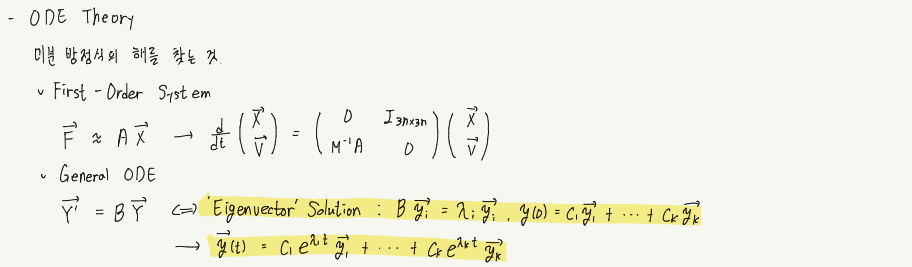 - ODE Theory
미분 방정식의 해를 찾는 것.
v First-Order System
F⃗ ≈ A X⃗ → d/dt ( X⃗ V⃗ ) = ( 0 I₃ₙₓ₃ₙ M⁻¹A 0 ) ( X⃗ V⃗ )
v General ODE
Y⃗' = B Y⃗ <=> 'Eigenvector' Solution : B y⃗ᵢ = λᵢ y⃗ᵢ , y(0) = c₁y⃗₁ + ⋯ + cₖ y⃗ₖ
→ y⃗(t) = c₁ e^{λ₁t} y⃗₁ + ⋯ + cₖ e^{λₖt} y⃗ₖ